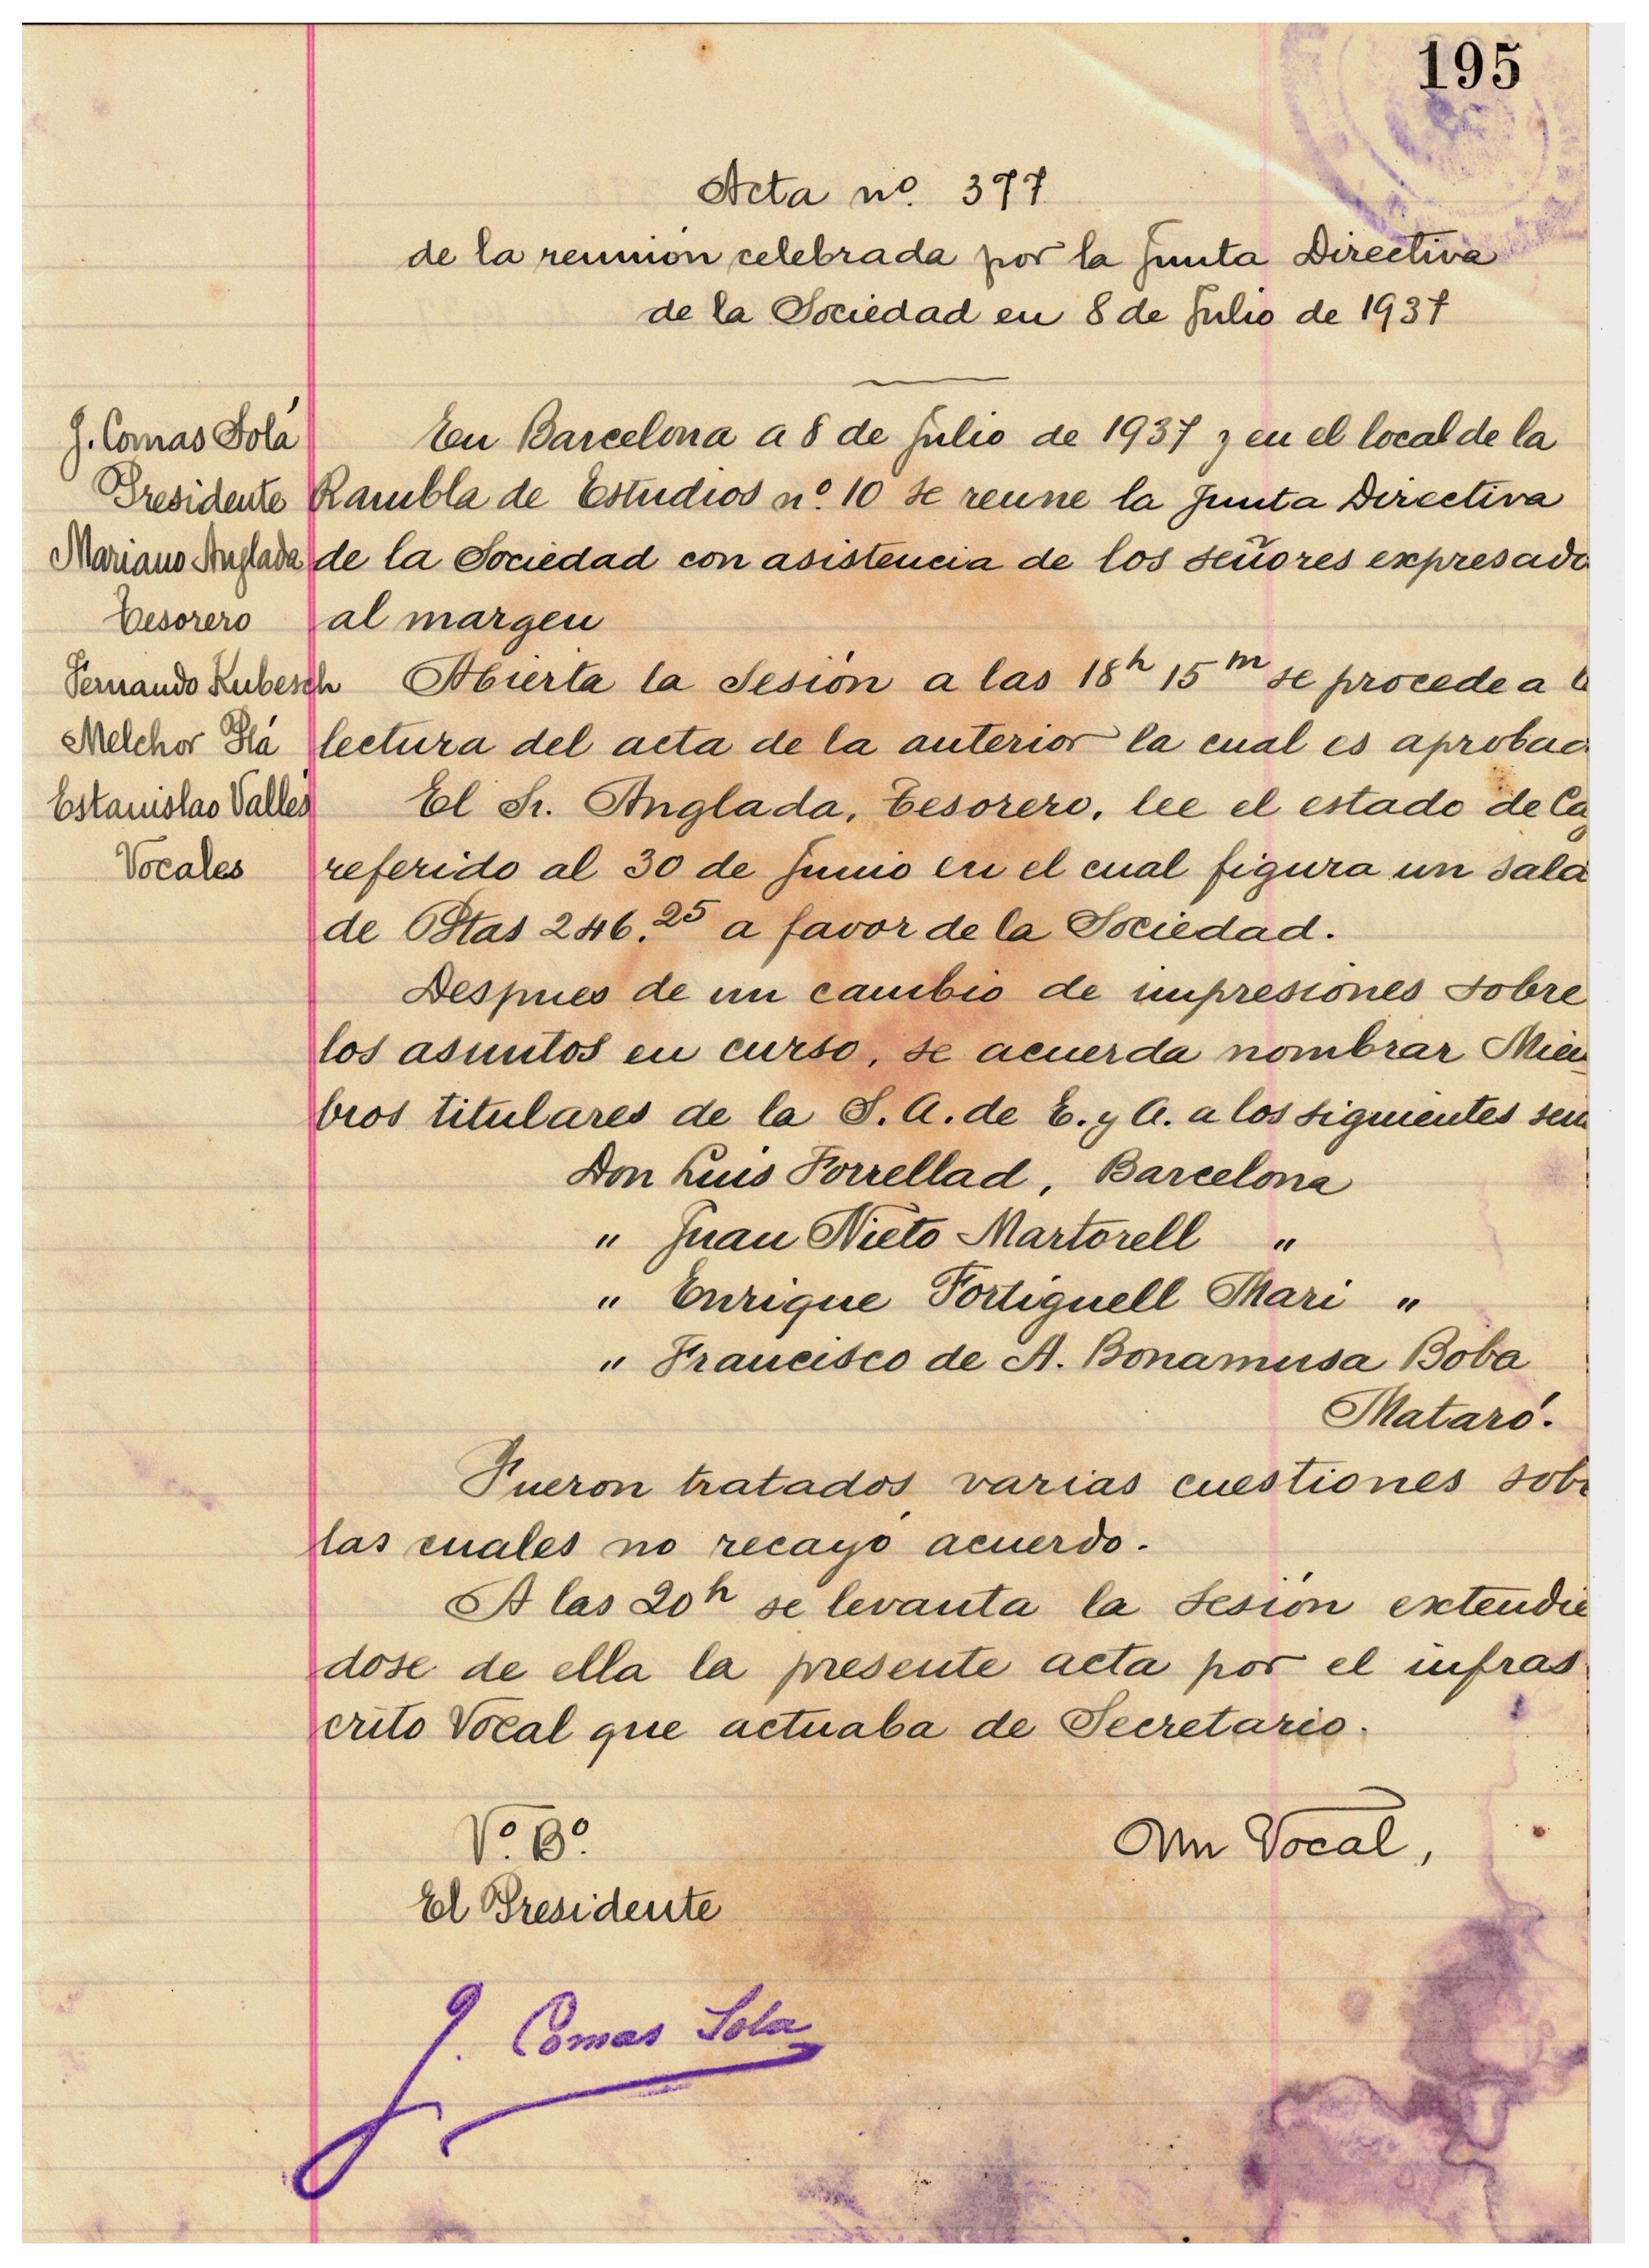 195
Acta nº. 377
de la reunión celebrada por la Junta Directiva
de la Sociedad en 8 de Julio de 1937
J. Comas Solá
Presidente
Mariano Anglada
Tesorero
Fernando Kubesch
Melchor Plá
Estanislao Vallés
Vocales
En Barcelona a 8 de Julio de 1937 y en el local de la
Rambla de Estudios nº. 10 se reune la Junta Directiva
de la Sociedad con asistencia de los señores expresado
al margen
Abierta la Sesión a las 18h 15m se procede a l
lectura del acta de la anterior la cual es aprobad
El Sr. Anglada, Tesorero, lee el estado de Caj
referido al 30 de Junio en el cual figura un sald
de Ptas 246.25 a favor de la Sociedad.
Despues de un cambio de impresiones sobre
los asuntos en curso, se acuerda nombrar Miem
bros titulares de la S. A. de E. y A. a los siguientes señ
Don Luis Forrellad, Barcelona
" Juan Nieto Martorell "
" Enrique Fortiguell Mari "
" Francisco de A. Bonamusa Boba
Mataró.
Fueron tratados varias cuestiones sobr
las cuales no recayó acuerdo.
A las 20h se levanta la sesión extendié
dose de ella la presente acta por el infras
crito Vocal que actuaba de Secretario.
Vº. Bº.
Un Vocal,
El Presidente
J. Comas Solá